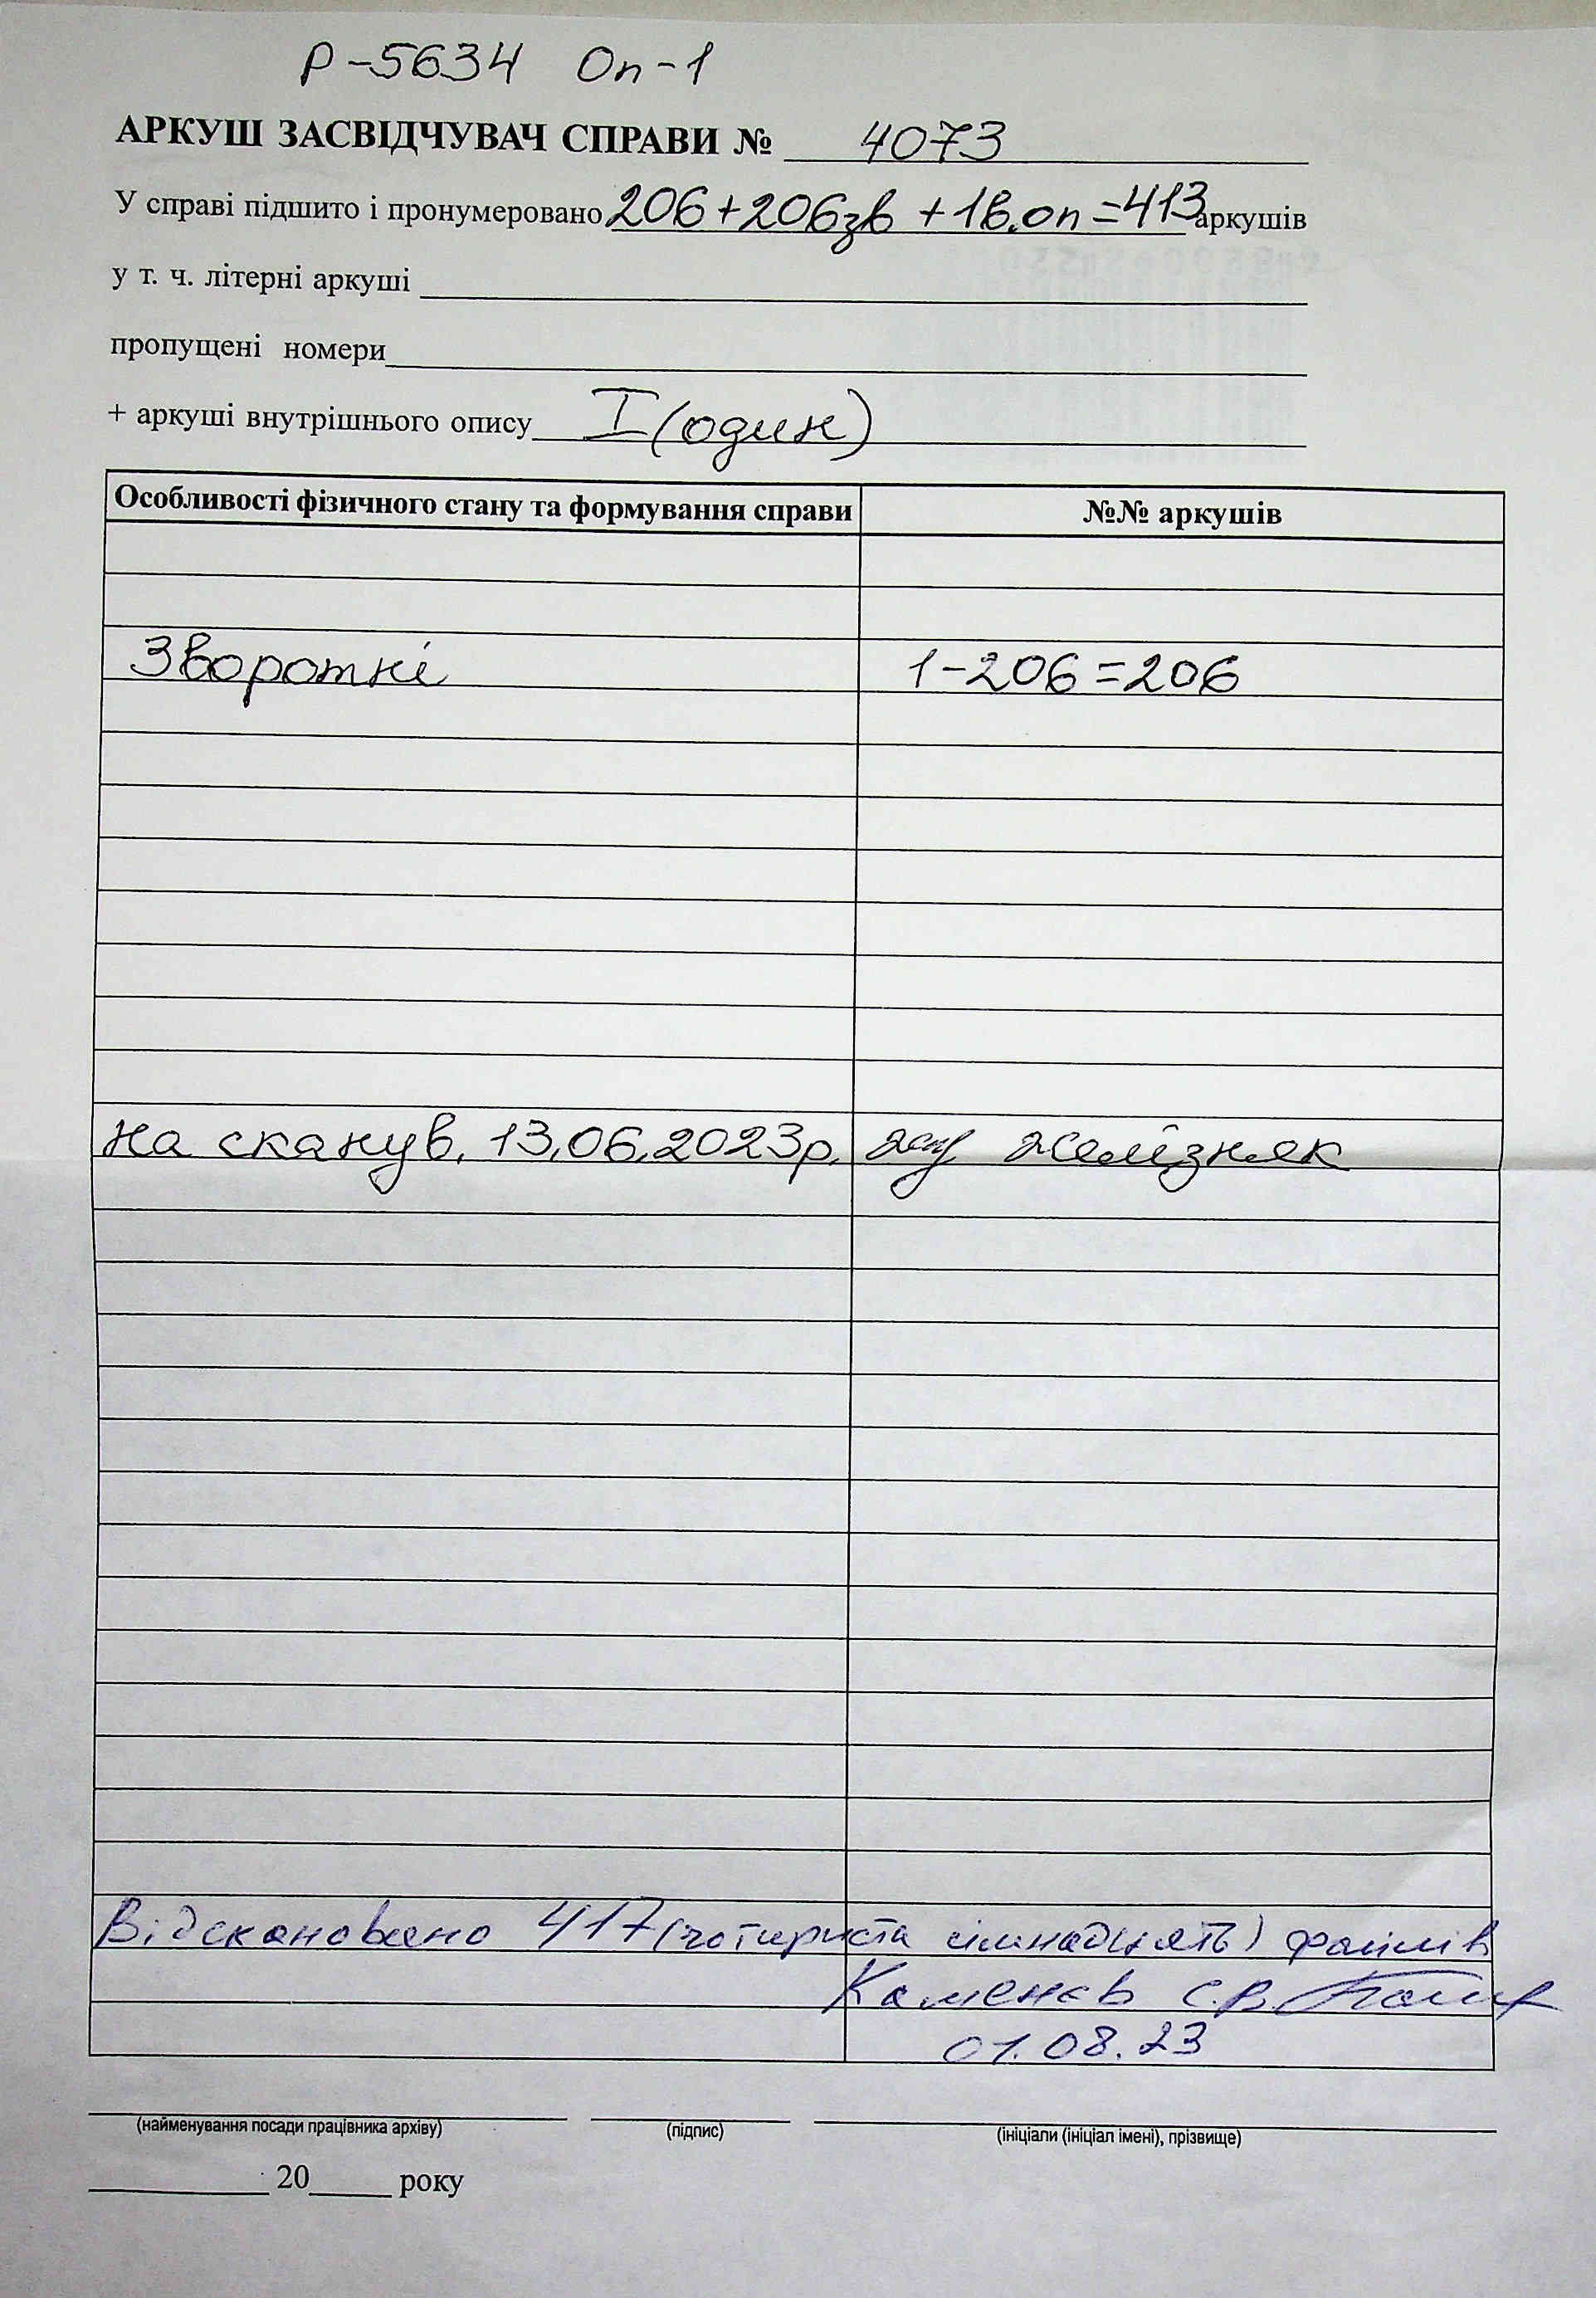 Р-5634 Оп-1
АРКУШ ЗАСВІДЧУВАЧ СПРАВИ № 4073
У справі підшито і пронумеровано 206+206зв+1в.оп=413 аркушів
у т. ч. літерні аркуші
пропущені номери
+ аркуші внутрішнього опису I (один)
Особливості фізичного стану та формування справи №№ аркушів
Зворотні 1-206=206
на сканув. 13.06.2023р. Желізняк
Відскановано 417 (чотириста сімнадцять) файлів
Каменєв С.В.
01.08.23
(найменування посади працівника архіву) (підпис) (ініціали (ініціал імені), прізвище)
20 року